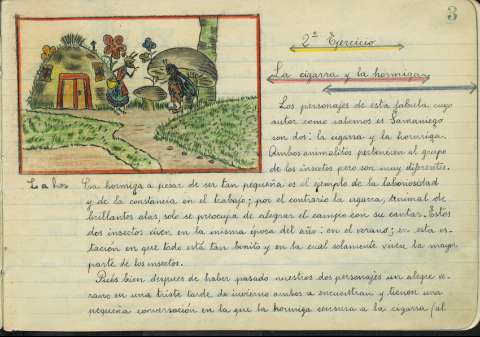 3
2º Ejercicio
La cigarra y la hormiga
Los personajes de esta fabula cuyo
autor como sabemos es Samaniego
son dos: la cigarra y la hormiga.
Ambos animalitos pertenecen al grupo
de los insectos pero son muy diferentes.
La hormiga a pesar de ser tan pequeña es el ejemplo de la laboriosidad
y de la constancia en el trabajo; por el contrario la cigarra, animal de
brillantes alas, solo se preocupa de alegrar el campo con su cantar. Estos
dos insectos viven en la misma época del año: en el verano; en esta es-
tación en que todo está tan bonito y en la cual solamente vive la mayor
parte de los insectos.
Pues bien despues de haber pasado nuestros dos personajes un alegre ve-
rano en una triste tarde de invierno ambos se encuentran y tienen una
pequeña conversación en la que la hormiga censura a la cigarra (al